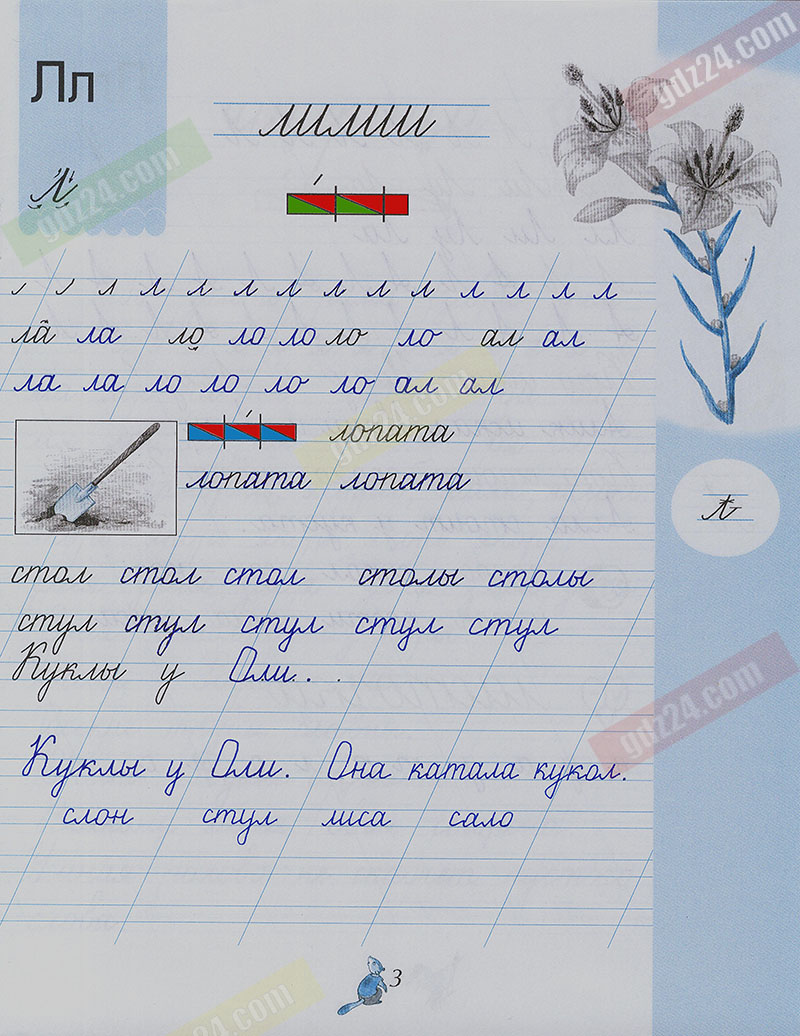 gdz24.com
Лл
лилии
л
gdz24.com
л л л л л л л л л л л
ла ла ло ло ло ло ло ал ал
ла ла ло ло ло ло ал ал
gdz24.com
лопата
лопата лопата
л
стол стол стол столы столы
стул стул стул стул стул
Куклы у Оли. .
gdz24.com
Куклы у Оли. Она катала кукол.
слон стул лиса сало
3
gdz24.com